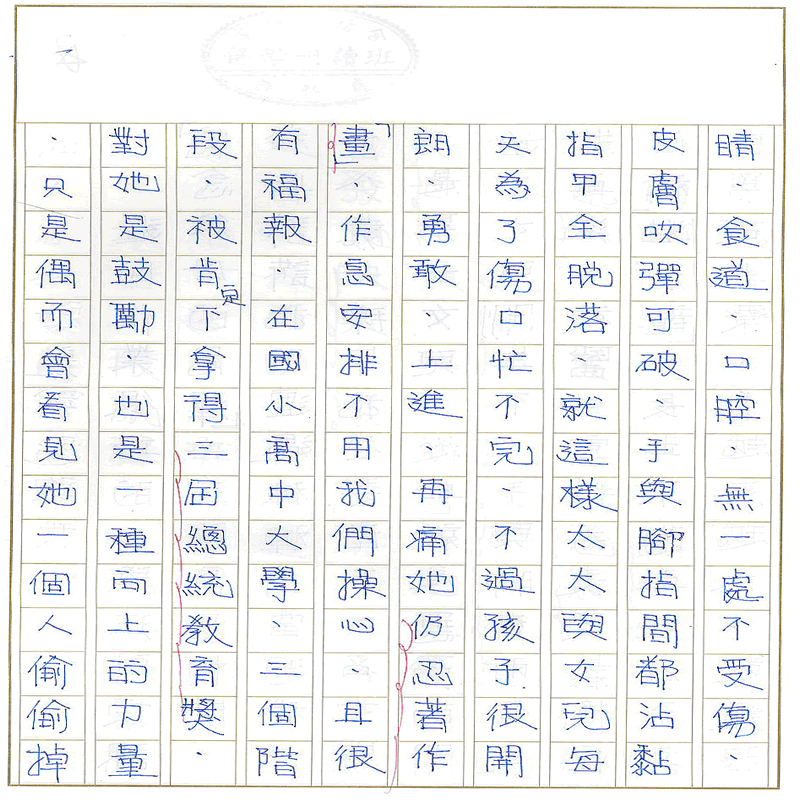 睛食道、口腔、無一處不受傷、
皮膚吹彈可破、手與腳指間都沾黏
指甲全脫落、就這樣太太與女兒每
天為了傷口忙不完、不過孩子很開
朗、勇敢、上進、再痛她仍忍著作
「畫」、作息安排不用我們操心、且很
有福報、在國小高中大學、三個階
段、被肯定下拿得三屆總統教育獎、
對她是鼓勵、也是一種向上的力量
、只是偶而會看見她一個人偷偷掉